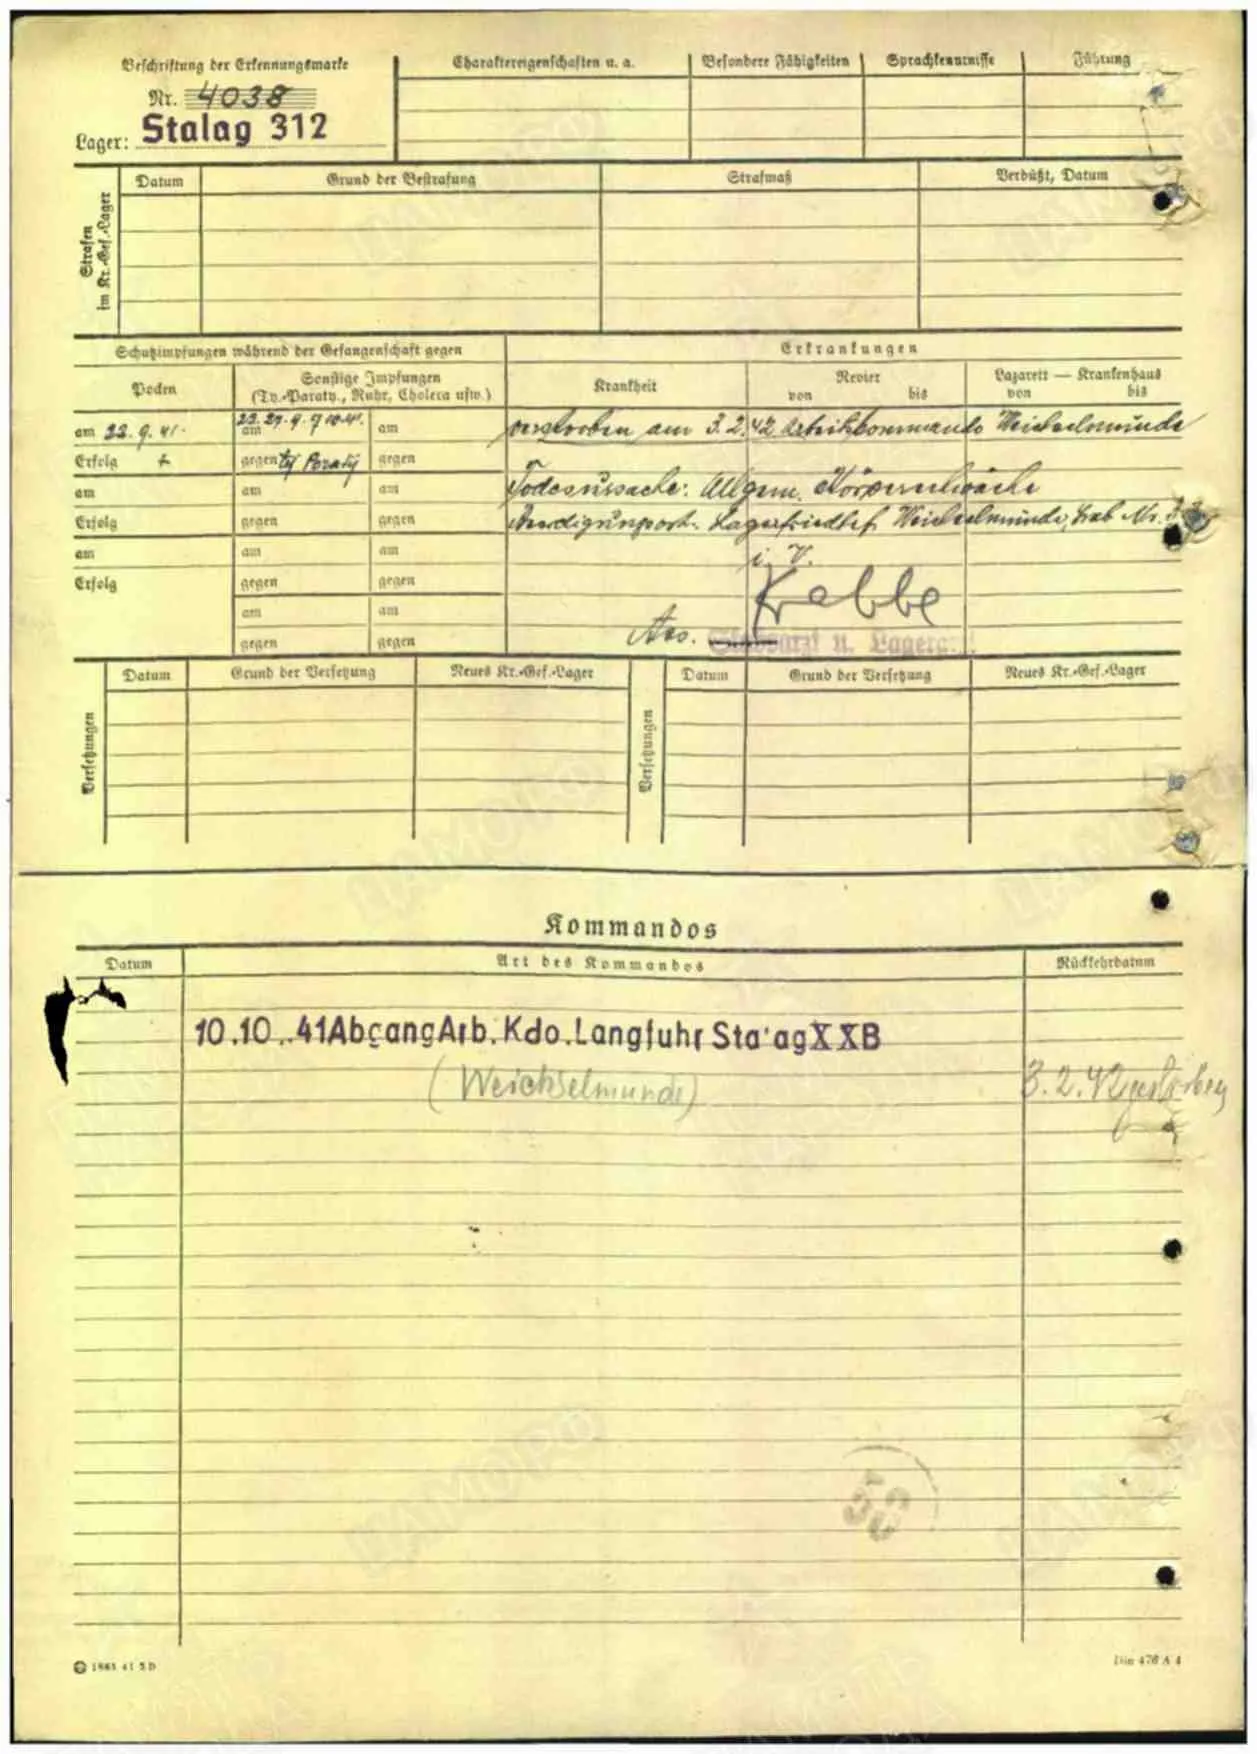 Beschriftung der Erkennungsmarke
Nr. 4038
Lager: Stalag 312
Charaktereigenschaften u. a.
Besondere Fähigkeiten
Sprachkenntnisse
Führung
Strafen
im Kr.-Gef.-Lager
Datum
Grund der Bestrafung
Strafmaß
Verbüßt, Datum
Schutzimpfungen während der Gefangenschaft gegen
Erkrankungen
Pocken
Sonstige Impfungen
(Ty.-Paraty., Ruhr, Cholera usw.)
Krankheit
Revier
von bis
Lazarett — Krankenhaus
von bis
am 22.9.41.
Erfolg +
am
Erfolg
am
Erfolg
am
gegen Ty Paraty
am
gegen
am
gegen
am
gegen
am
gegen
am
gegen
am
gegen
am
gegen
verstorben am 3.2.42 Arbeitskommando Weichselmünde
Todesursache: Allgem. Körperschwäche
Lagerfriedhof Weichselmünde, Grab Nr.
i. V.
Krabbe
Ass. Stabsarzt u. Lagera
Versetzungen
Datum
Grund der Versetzung
Neues Kr.-Gef.-Lager
Versetzungen
Datum
Grund der Versetzung
Neues Kr.-Gef.-Lager
Kommandos
Datum
Art des Kommandos
Rückkehrdatum
10.10..41 Abgang Arb. Kdo. Langfuhr Stalag XXB
(Weichselmünde)
3.2.42 gestorben
1985 41 5 D
Din 476 A 4